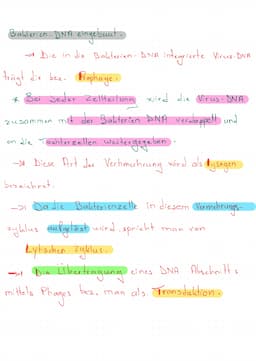 Bakterien DNA eingebaut.
→ Die in die Bakterien-DNA integrierte Virus-DNA
trägt die bez. Prophage.
* Bei jeder Zellteilung wird die Virus-DNA
zusammen mit der Bakterien DNA verdoppelt und
an die Tochterzellen weitergegeben.
→ Diese Art der Vermehrung wird als lysogen
bezeichnet.
→ Da die Bakterienzelle in diesem Vermehrungs-
zyklus aufgelöst wird spricht man von
Lytischen Zyklus.
→ Die Übertragung eines DNA Abschnitts
mittels Phages bez. man als Transduktion.